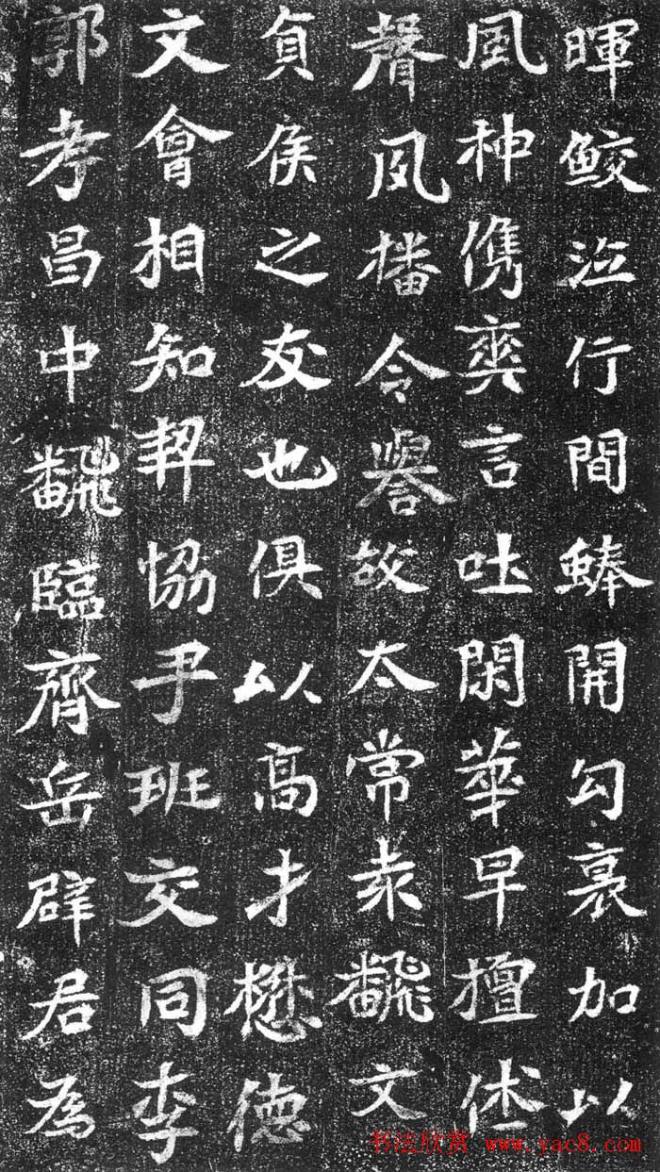 暉鮫泣行間開勾裏加以
風种儁爽言吐閑華早擅
聲風播令譽故太常飜文
貞侯之友也俱以高才懋德
文會相知契協乎班交同李
郭孝昌中飜臨齊岳辟君為
书法欣赏 www.yac8.com